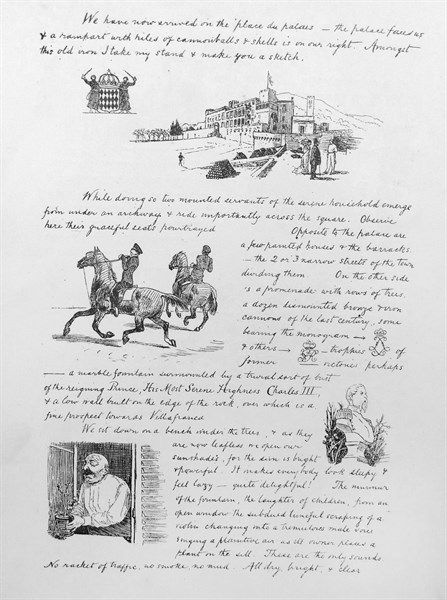 We have now arrived on the place du palais — the palace faces us
& a rampart with piles of cannonballs & shells is on our right Amongst
this old iron I take my stand & make you a sketch.
While doing so two mounted servants of the serene household emerge
from under an archway & ride importantly across the square. Observe
here their graceful seats pourtrayed
Opposite to the palace are
a few painted houses & the barracks
— the 2 or 3 narrow streets of the town
dividing them On the other side
is a promenade with rows of trees,
a dozen dismounted bronze & iron
cannons of the last century, some
bearing the monogram → of
& others → — trophies of
former victories perhaps
— a marble fountain surmounted by a trivial sort of bust
of the reigning Prince, His Most Serene Highness Charles III,
& a low wall built on the edge of the rock, over which is a
fine prospect towards Villafranca
We sit down on a bench under the trees, & as they
are now leafless we open our
sunshades, for the sun is bright
& powerful It makes everybody look sleepy &
feel lazy — quite delightful! The murmur
of the fountain, the laughter of children, from an
open window the subdued tuneful scraping of a
violin changing into a tremulous male voice
singing a plaintive air as its owner plans a
plant on the sill These are the only sounds
No racket of traffic, no smoke, no mud. All dry, bright, & clear